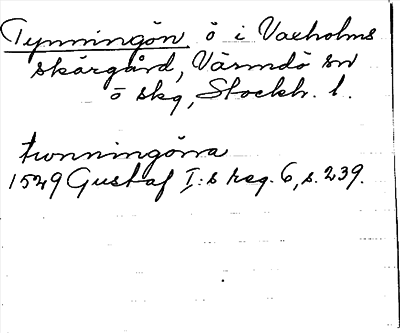 Tynningön ö i Vaxholms
skärgård, Värmdö sn
ö skg, Stockh. l.
tunningöna
1529 Gustaf I:s reg. 6, s. 239.